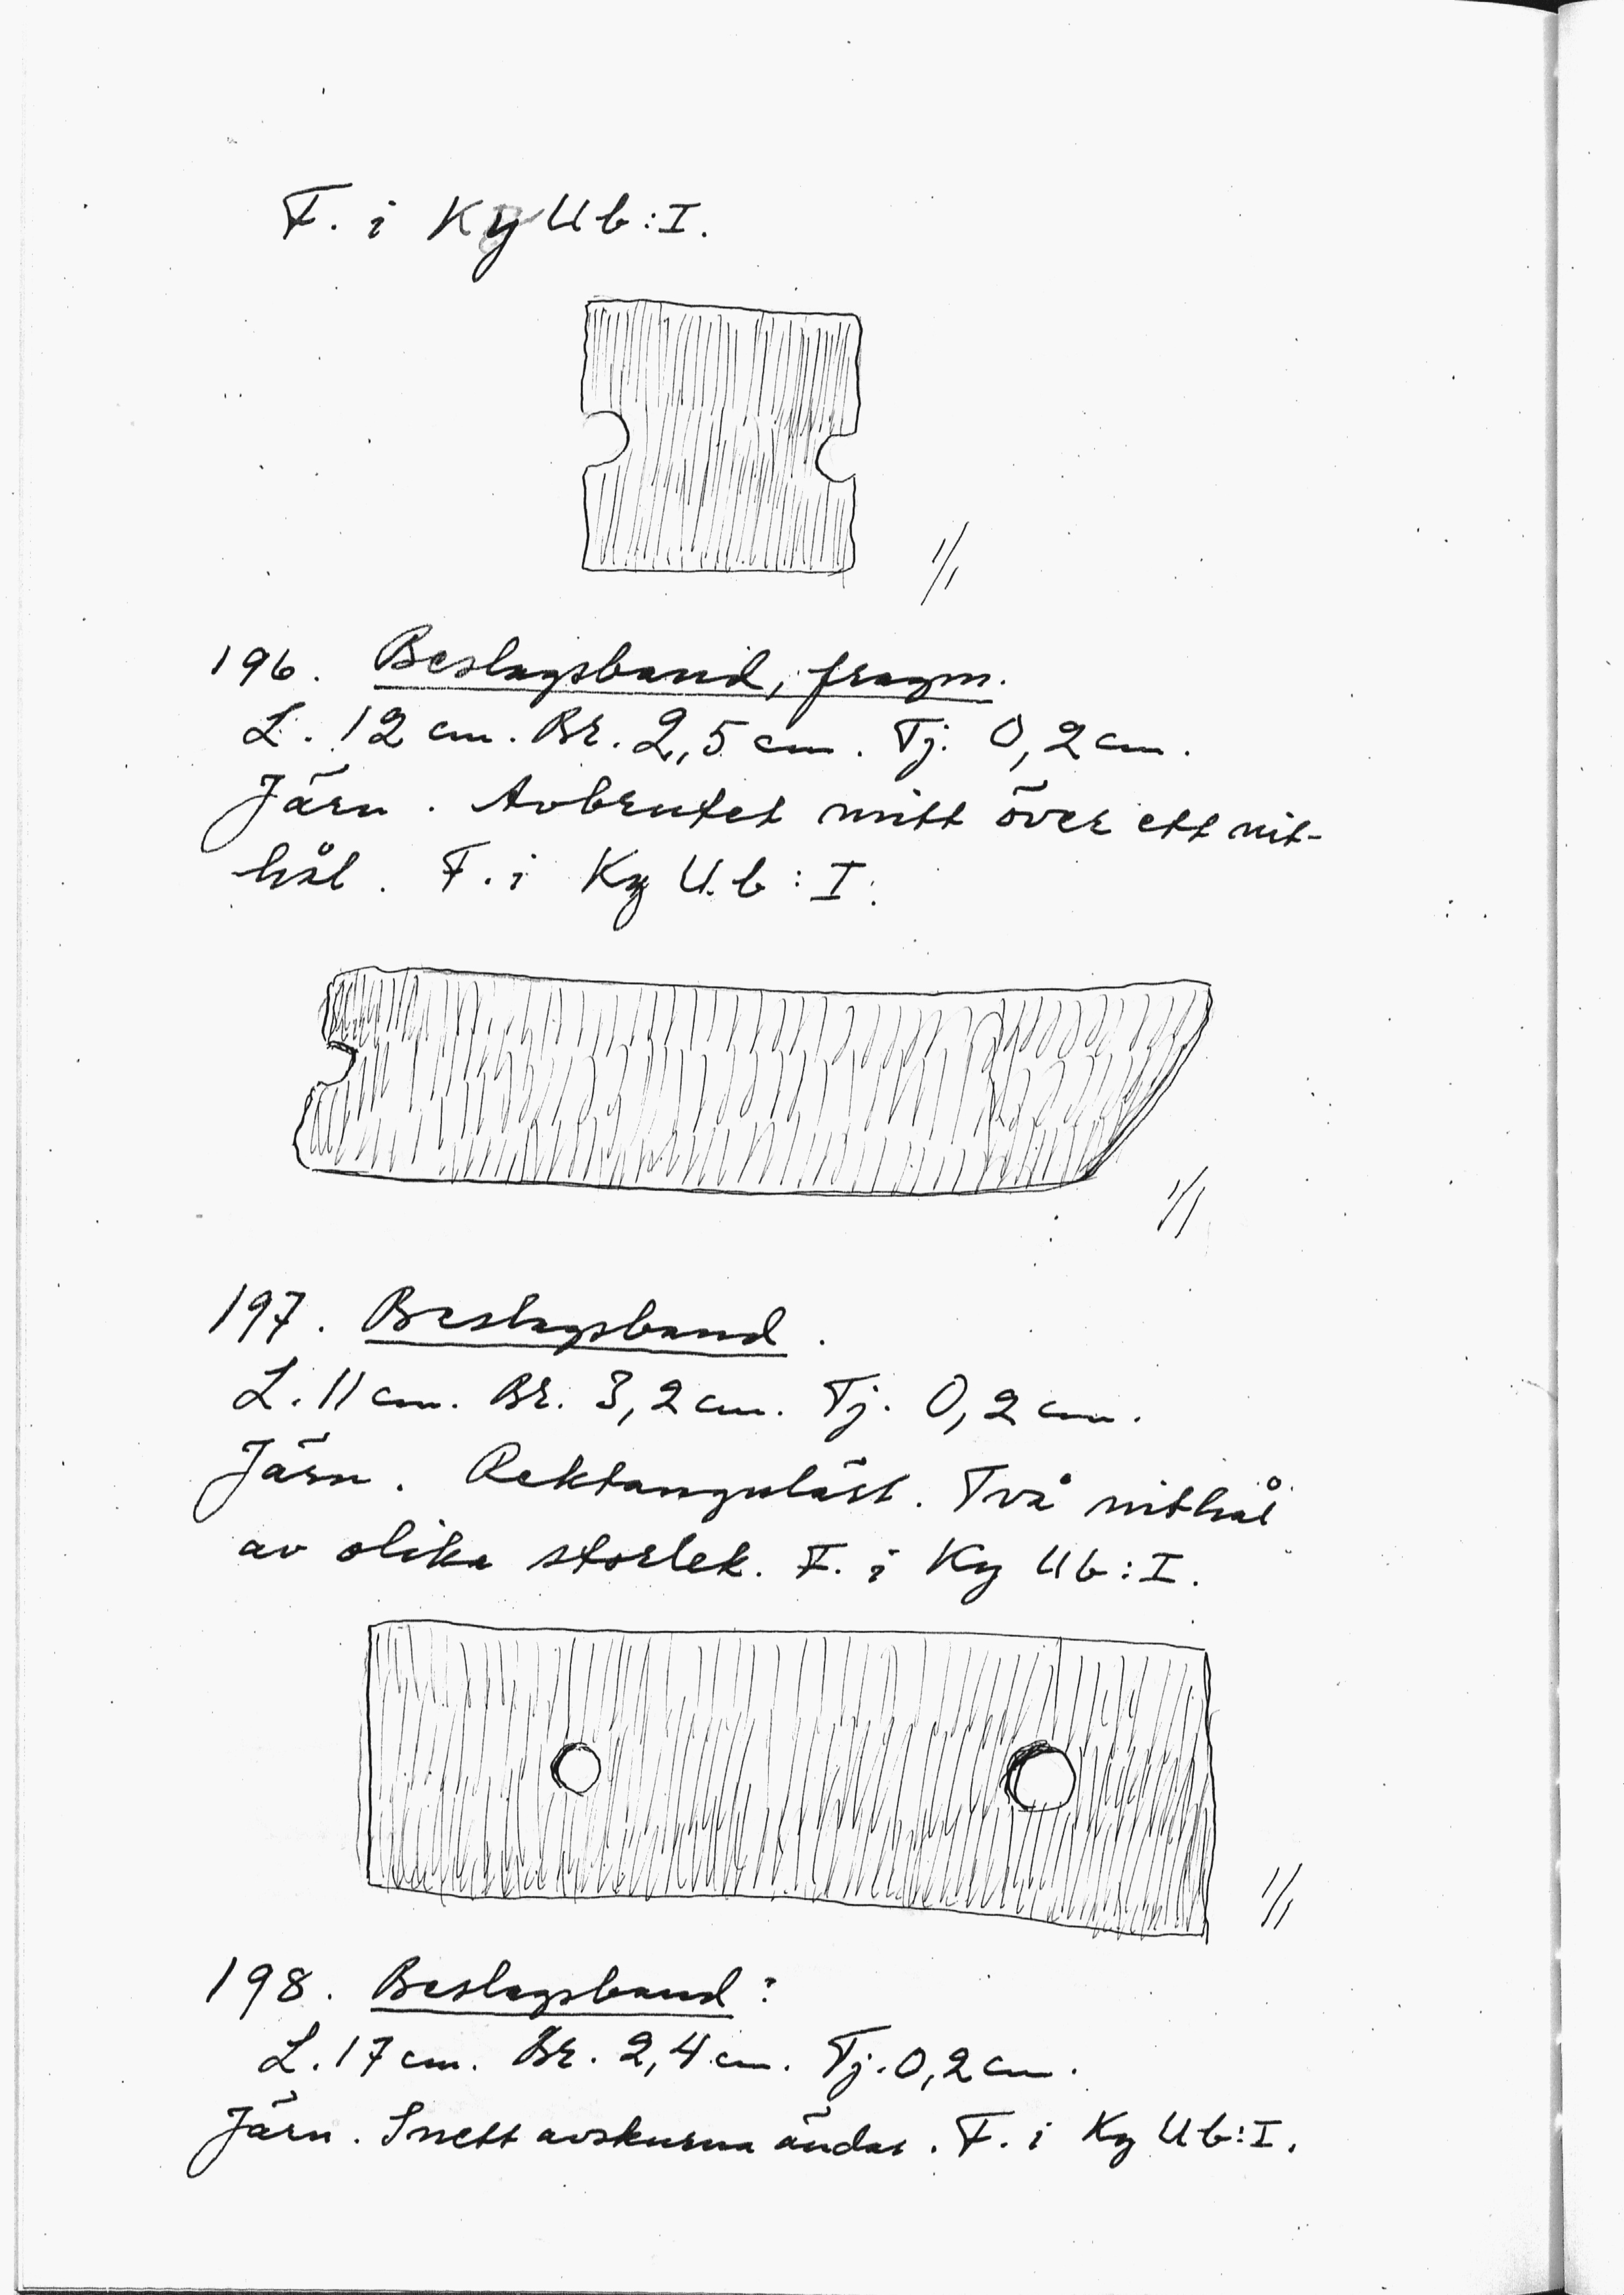 F. i Ky Ub:I.
1/1
196. Beslagsband, fragm.
L. 12 cm. Br. 2,5 cm. Tj. 0,2 cm.
Järn. Avbrutet mitt över ett nit-
hål. F. i Ky U.b:I.
1/1
197. Beslagsband.
L. 11 cm. Br. 3,2 cm. Tj. 0,2 cm.
Järn. Rektangulärt. Två nithål
av olika storlek. F. i Ky Ub:I.
1/1
198. Beslagsband?
L. 17 cm. Br. 2,4 cm. Tj. 0,2 cm.
Järn. Snett avskurna ändar. F. i Ky Ub:I.